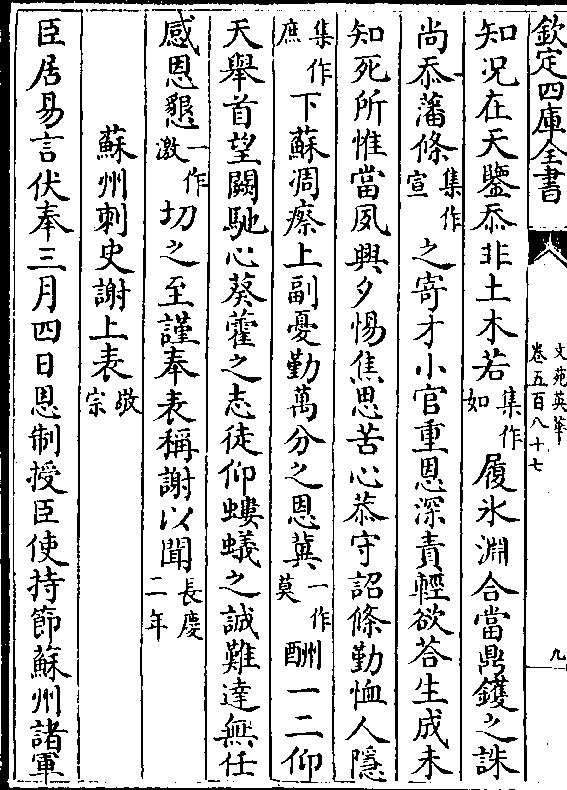 欽定四庫全書
文苑英華
卷五百八十七
九
知況在天鑒忝非土木若集作如履氷淵合當鼎鑊之誅
尚忝藩條集作宣之寄才小官重恩深責輕欲答生成未
知死所惟當夙興夕惕焦思苦心恭守詔條勤恤人隱
集作庶下蘇凋瘵上副憂勤萬分之恩冀一作莫酬一二仰
天舉首望闕馳心葵藿之志徒仰螻蟻之誠難達無任
感恩懇一作激切之至謹奉表稱謝以聞長慶二年
蘇州刺史謝上表敬宗
臣居易言伏奉三月四日恩制授臣使持節蘇州諸軍